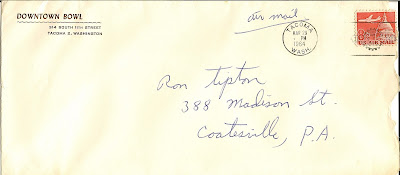 DOWNTOWN BOWL
314 SOUTH 11TH STREET
TACOMA 2, WASHINGTON
air mail
TACOMA
MAR 28
PM
1964
WASH.
U.S. AIR MAIL
Ron Tipton
388 Madison St.
Coatesville, P.A.